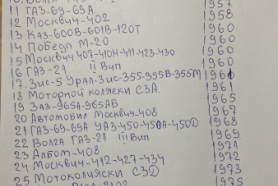 11 ГАЗ-69-69А. 1957
12 Москвич-402 1958
13 КАЗ-600В-601В-120Т 1960
14 Победа М-20 1960
15 Москвич 407-410Н-411-423-430 1960
16 ГАЗ-21 II Вып 1960
17. Зис-5 Урал-Зис-355-355В-355М 1961
18 Моторной коляски СЗА 1960
19 Заз-965А-965АБ 1966
20 Автомобил Москвич-408 1967
21 ГАЗ-69-69А УАЗ-450-450А-450Д 1968
22 Волга ГАЗ-21 III Вып 1969
23 Альбом-408 1971
24 Москвич-412-427-434 1972
25 Мотоколяски СЗД 1973
1975